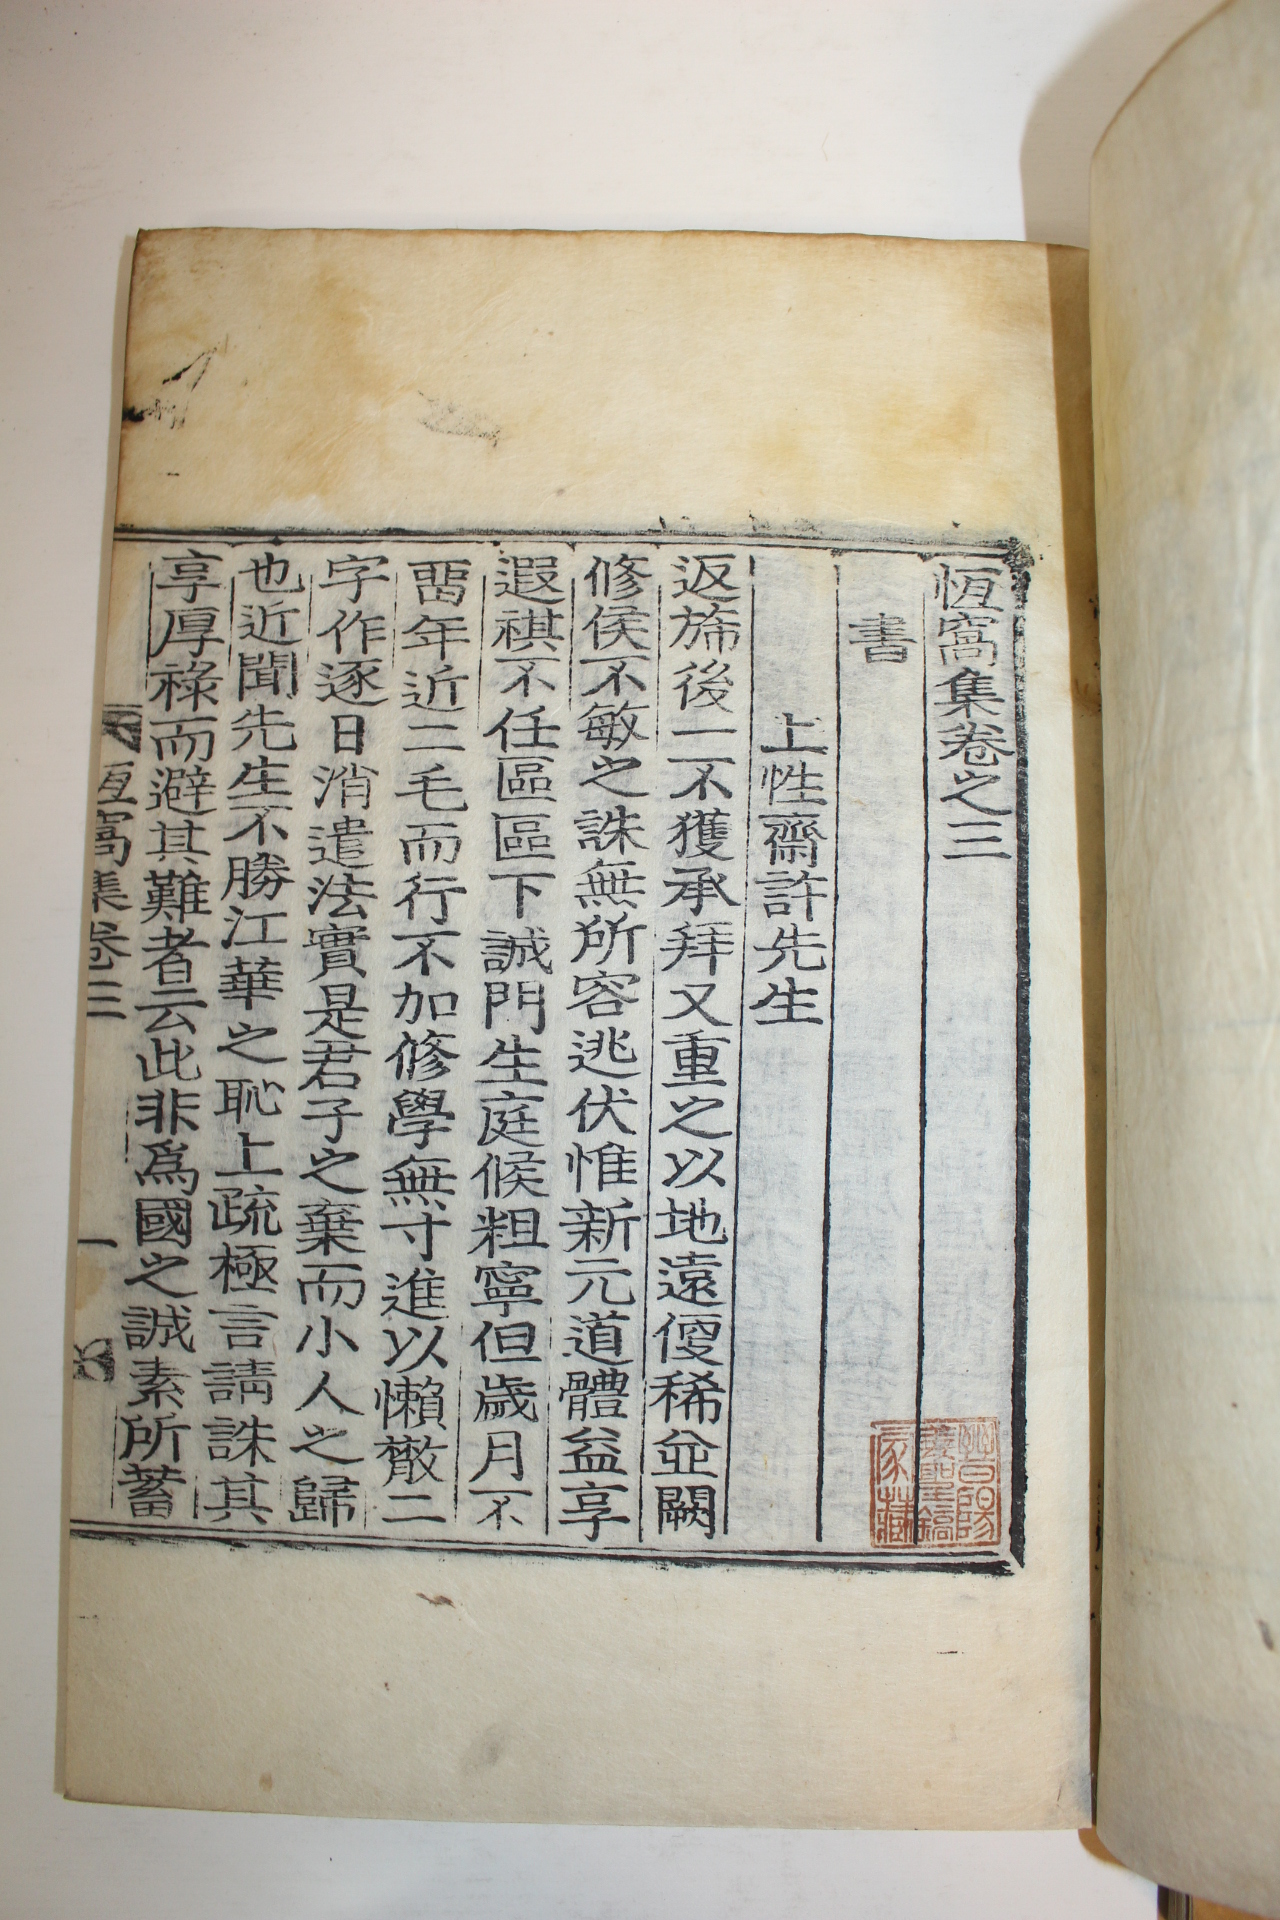 恆窩集卷之三
書
上性齋許先生
返旆後一不獲承拜又重之以地遠便稀並闕
修侯不敏之誅無所容逃伏惟新元道體益享
遐祺不任區區下誠門生庭候粗寧但歲月不
畱年近二毛而行不加修學無寸進以懶散二
字作逐日消遣法實是君子之棄而小人之歸
也近聞先生不勝江華之恥上疏極言請誅其
享厚祿而避其難者云此非爲國之誠素所蓄
恆窩集卷三
一